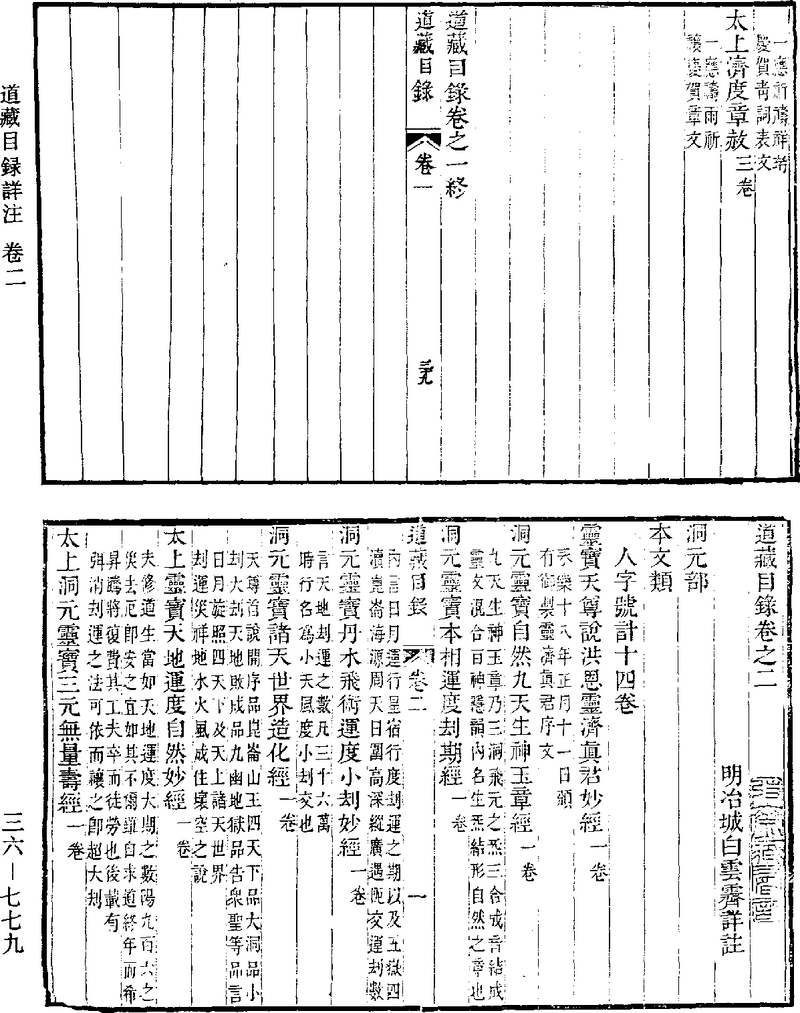 一應祈禱祥瑞
慶賀青詞表文
太上濟度章赦三卷
一應禱雨祈
禳慶賀章文
道藏目錄卷之一終
道藏目錄
卷一
三九
道藏目録詳注 卷二
道藏目錄卷之二
明冶城白雲霽詳註
洞元部
本文類
人字號計十四卷
靈寶天尊說洪恩靈濟眞君妙經一卷
永樂十八年正月十一日頒
有御製靈濟眞君序文
洞元靈寶自然九天生神玉章經一卷
九天生神玉章乃三洞飛元之炁三合成音結成
靈文混合百神隱韻內名生炁結形自然之章也
洞元靈寶本相運度刼期經一卷
道藏目錄
卷二
一
內言日月運行星宿行度刼運之期以及五嶽四
瀆崑崙海源周天日圍高深縱廣遇阨交運刼數
洞元靈寶丹水飛術運度小刼妙經一卷
言天地刼運之數凡三千六萬
時行名爲小天風度小刼交也
洞元靈寶諸天世界造化經一卷
天尊治說開序品崑崙山王四天下品大洞品小
刼大刼天地敗成品九幽地獄品告衆聖等品言
日月旋照四天下及天上諸天世界
刼運災祥地水火風成住壞空之說
太上靈寶天地運度自然妙經一卷
夫修道生當如天地運度大期之數陽九百六之
災去厄卽安之宜如其不爾雖白求道終年而希
昇騰將復費其工夫卒而徒勞也後載有
弭消刼運之法可依而禳之卽超大刼
太上洞元靈寶三元無量壽經一卷
三六—七七九